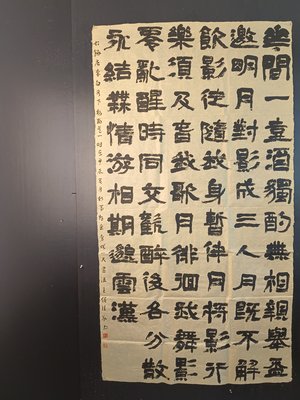 華間一壺酒獨酌無相親舉盃
邀明月對影成三人月既不解
飲影徒隨我身暫伴月將影行
樂須及春我歌月徘徊我舞影
零亂醒時同交歡醉後各分散
永結無情遊相期邈雲漢
李白月下獨酌